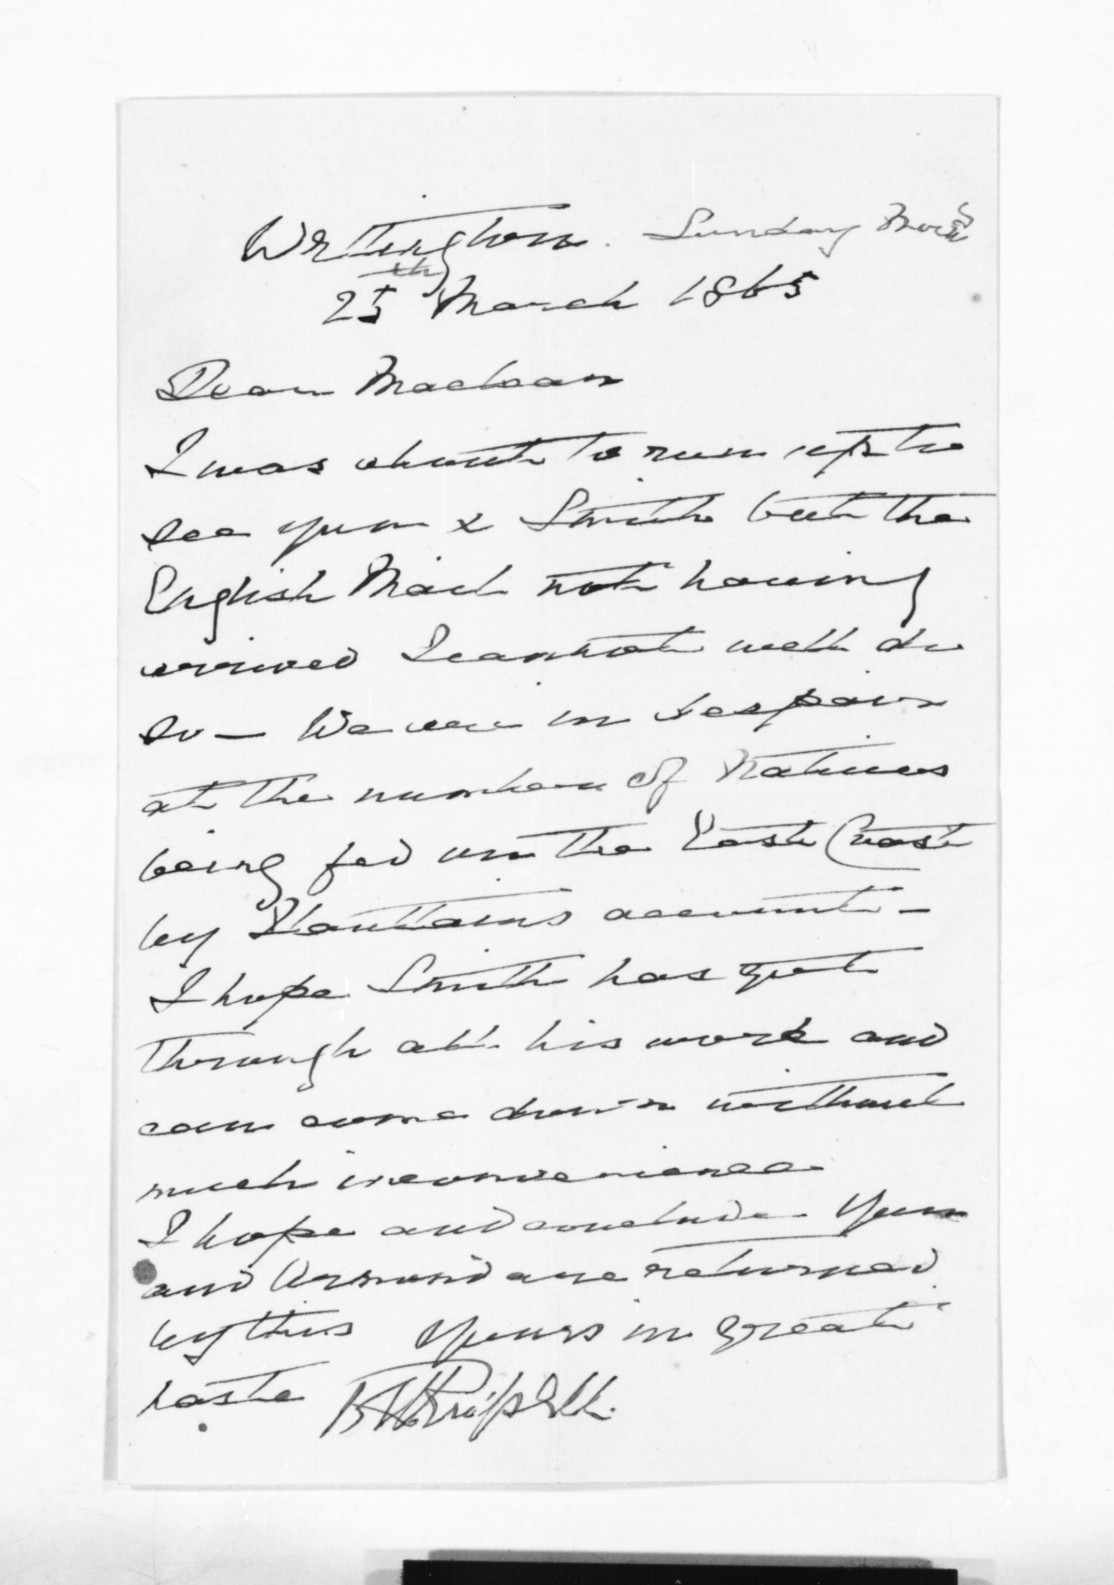 Wellington. Sunday
25th March 1865
Dear Maclean
I was about to run up to
see you & Smith but the
English Mail not having
arrived I cannot well do
so — We are in despair
at the number of Natives
being fed on the East Coast
by account —
I hope Smith has got
through all his work and
can come down without
much inconvenience
I hope and conclude you
and Ormond are returned
by this Yours in great
haste